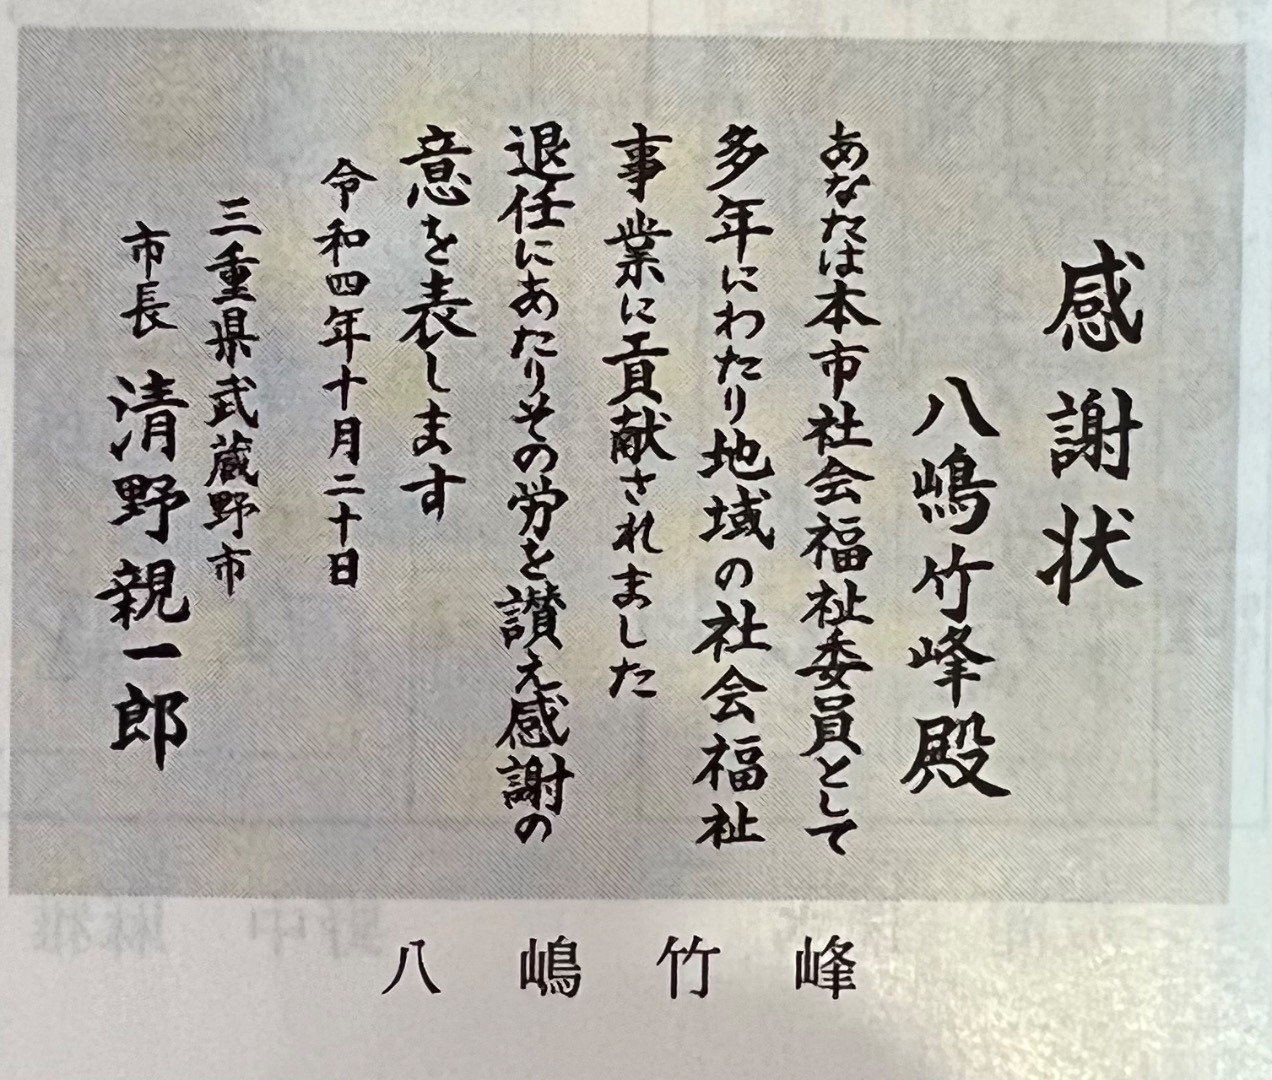 感謝状
八嶋竹峰殿
あなたは本市社会福祉委員として
多年にわたり地域の社会福祉
事業に貢献されました
退任にあたりその労を讃え感謝の
意を表します
令和四年十月二十日
三重県武蔵野市
市長 清野親一郎
八嶋竹峰